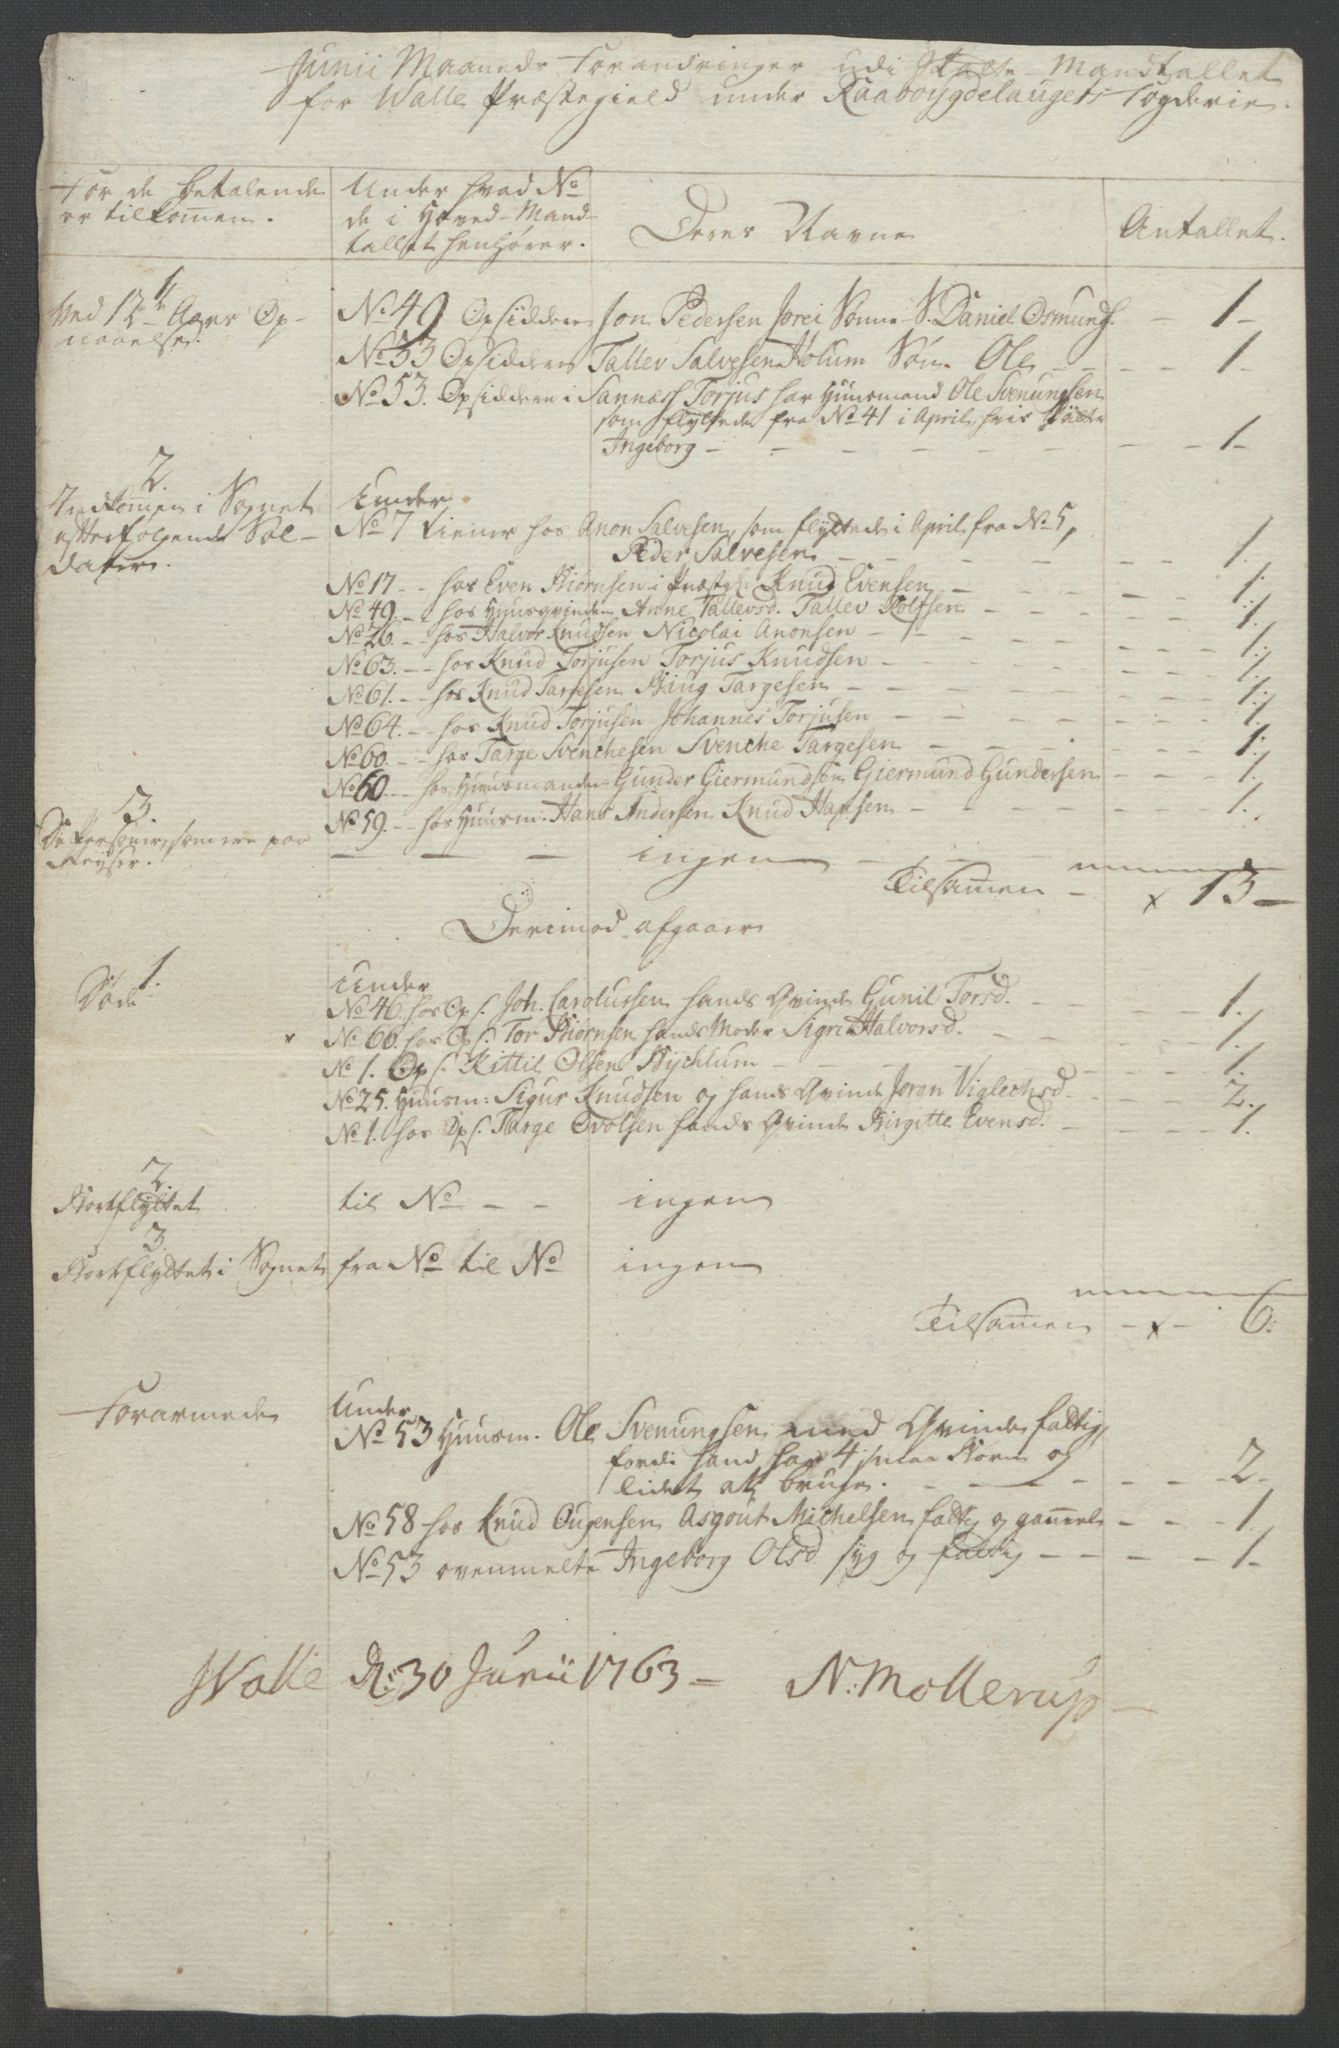 Junii Maaneds Forandringer udi Skatte-Mandtallet
for Walle Præstegield under Raaboÿgdelaugets Fogderie.
For de betalende er tilkom̄en.
Under hvad No de i Hoved-Mandtallet henhører.
Deres Navne
Antallet.
1
Ved 12te Aars Opnaaelse.
No 49 Opsiddere Jon Pedersen Jorei Sønne S. Daniel Osmunds. - 1-
No 53 Opsiddere Tallev Salvesen Holum Søn. Ole - - - - 1-
No 53. Opsiddere i Sannæss Torjus har Huusmand Ole Svenungsen
som flyttede fra No 41 i April, hvis Datter
Ingeborg - - - - - - - - 1-
2.
Indkom̄en i Sognet efterfølgende Soldater.
Under
No 7 tiener hos Anon Salvesen, som flyttede i April fra No 5,
Peder Salvesen - - - - - 1.
No 17 - - hos Even Biørnsen i Præstg: Knud Evensen - - - 1.
No 49. - - hos Huusqvinden Anne Tallevsd. Tallev Rolfsen - - - 1.
No 26. - hos Halvor Knudsen Nicolai Anonsen - - - - 1.
No 63. - - hos Knud Torjusen Torjus Knudsen - - - - 1.
No 61. - hos Knud Targesen Biug Targesen - - - - 1.
No 64. - - hos Knud Torjusen Johannes Torjusen - - - - 1.
No 60. - - hos Targe Svenchesen Svenche Targesen - - - - 1.
No 60 - - hos Huusmanden Gunder Giermundsen Giermund Gundersen - - - 1.
No 59. - - hos Huusm: Hans Andersen Knud Hansen - - - - 1.
3
De Personer, som ere paa Reyser.
- - - ingen - - -
Tilsam̄en - x 13 -
Derimod afgaaer
1.
Døde
Under
No 46. hos Ops. Joh. Carolussen hands Qvinde Gunil Torsd. - - - 1.
x No 60. hos Ops. Tor Biørnsen hands Moder Sigri Halvorsd. - - - 1.
No 1. Ops. Kittil Olsen Rychlum - - - - 1.
No 25. Huusm: Sigur Knudsen og hands Qvinde Joran Viglechsd - - - 2.
No 1. hos Ops. Targe Ovolsen hands Qvinde Birgitte Evensd. - - - 1.
2.
Bortflyttet
til No - - ingen
3
Bortflyttet i Sognet fra No til No ingen
Tilsam̄en - x - 6.
Forarmede
Under
No 53 Huusm. Ole Svenungsen med Qvinde fattig,
fordi hand har 4 smaa Børn og
lidet at bruge. - - - - - 2-
No 58 hos Knud Ougensen Asgout Michelsen fattig og gam̄el - - - 1
No 53 ovenmelte Ingeborg Olsd syg og fattig - - - - 1-
Walle D: 30 Junii 1763 - N: Mollerup